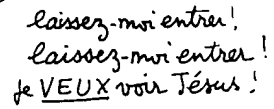 laissez-moi entrer!
laissez-moi entrer!
je VEUX voir Jésus!